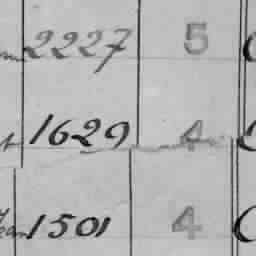 2227 5
1629 4
1501 4